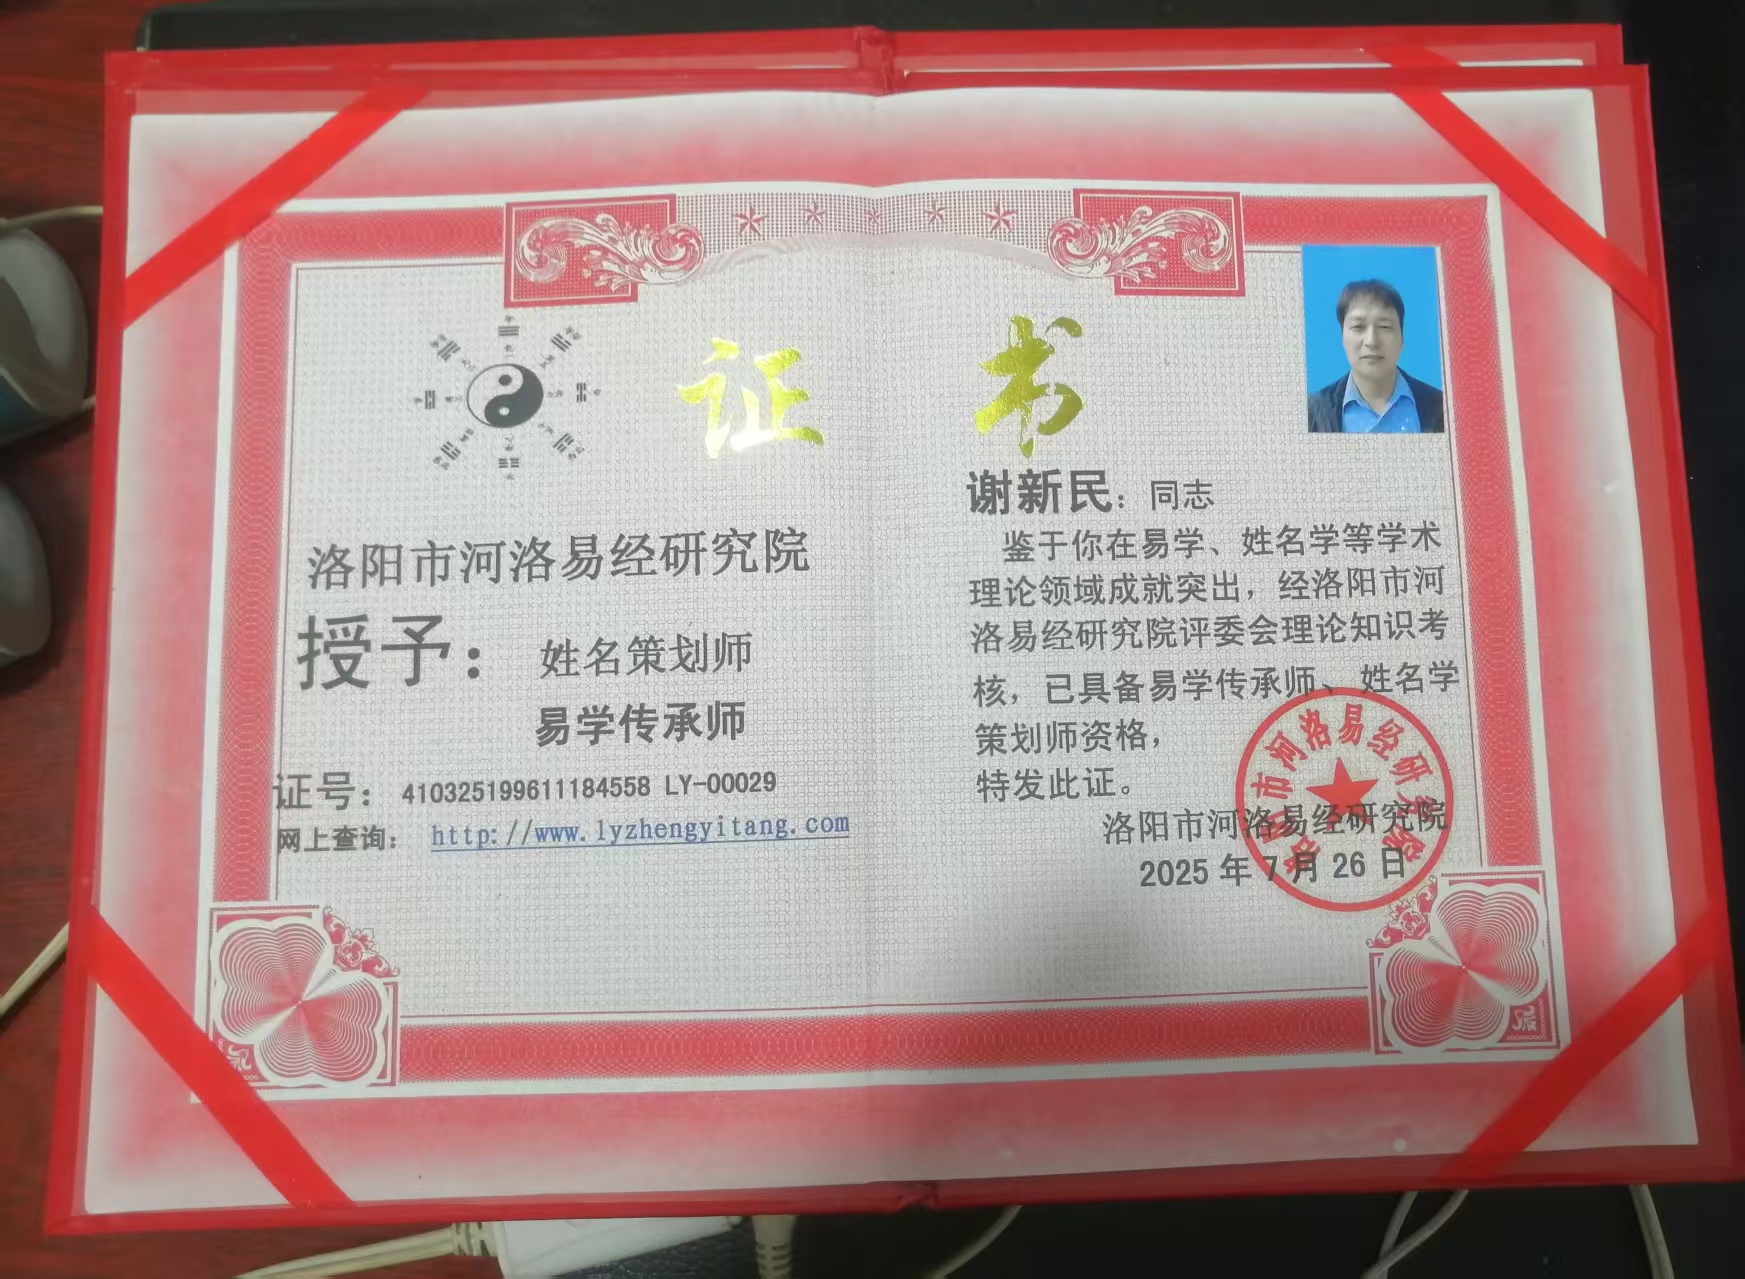 证 书
洛阳市河洛易经研究院
授予：姓名策划师
易学传承师
证号：410325199611184558 LY-00029
网上查询：http://www.lyzhengyitang.com
谢新民：同志
鉴于你在易学、姓名学等学术
理论领域成就突出，经洛阳市河
洛易经研究院评委会理论知识考
核，已具备易学传承师、姓名学
策划师资格，
特发此证。
洛阳市河洛易经研究院
2025 年 7 月 26 日
洛阳市河洛易经研究院